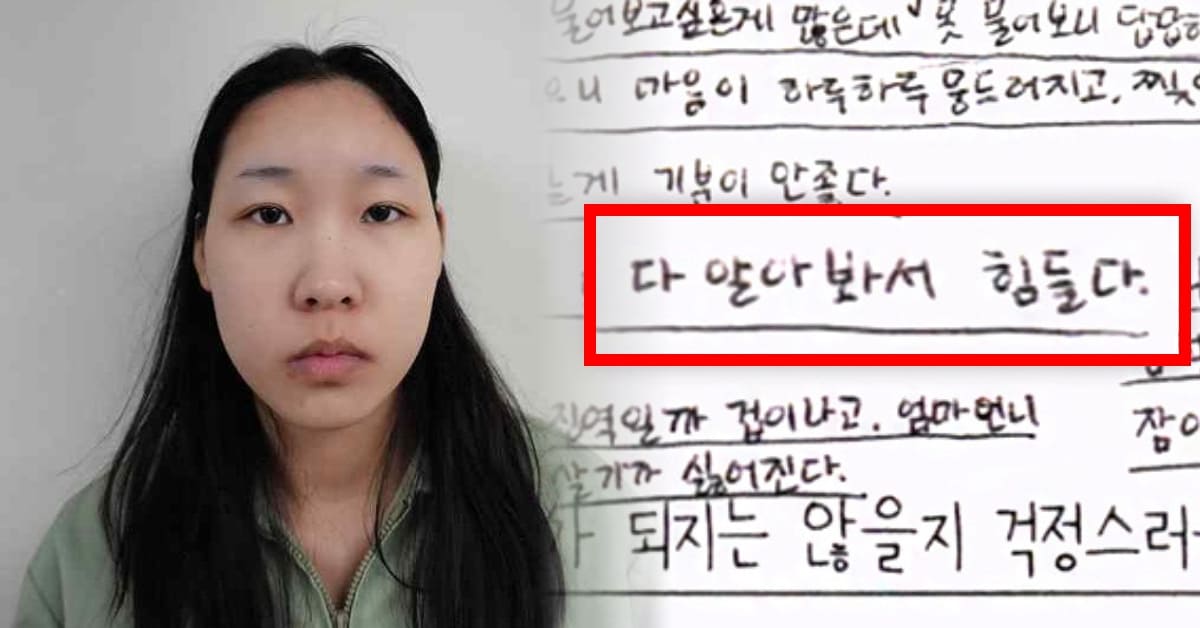 물어보고싶은게 많은데 못 물어보니 답답하
마음이 하루하루 뭉드러지고, 찢
는게 기분이 안좋다.
다 알아봐서 힘들다.
진역일까 겁이나고. 엄마언니
살기가 싫어진다.
잠이
되지는 않을지 걱정스러